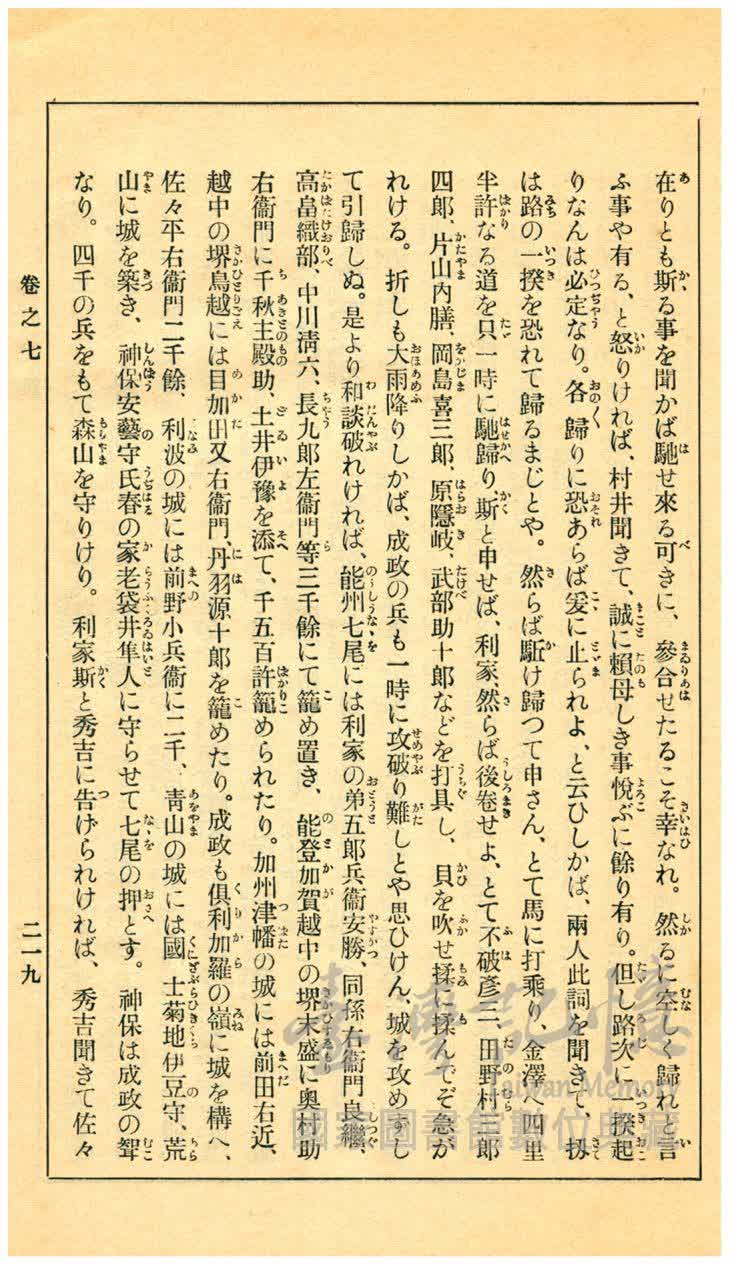 在りとも斯る事を聞かば馳せ來る可きに、參合せたるこそ幸なれ。然るに空しく歸れと言
ふ事や有る、と怒りければ、村井聞きて、誠に賴母しき事悅ぶに餘り有り。但し路次に一揆起
りなんは必定なり。各歸りに恐あらば爰に止られよ、と云ひしかば、兩人此詞を聞きて、扨
は路の一揆を恐れて歸るまじとや。然らば駈け歸つて申さん、とて馬に打乘り、金澤へ四里
半許なる道を只一時に馳歸り、斯と申せば、利家、然らば後卷せよ、とて不破彥三、田野村三郎
四郎、片山內膳、岡島喜三郎、原隱岐、武部助十郎などを打具し、貝を吹せ揉に揉んでぞ急が
れける。折しも大雨降りしかば、成政の兵も一時に攻破り難しとや思ひけん、城を攻めずし
て引歸しぬ。是より和談破れければ、能州七尾には利家の弟五郎兵衞安勝、同孫右衞門良繼、
高畠織部、中川淸六、長九郎左衞門等三千餘にて籠め置き、能登加賀越中の堺末盛に奧村助
右衞門に千秋主殿助、土井伊豫を添て、千五百許籠められたり。加州津幡の城には前田右近、
越中の堺鳥越には目加田又右衞門、丹羽源十郎を籠めたり。成政も俱利加羅の嶺に城を構へ、
佐々平右衞門二千餘、利波の城には前野小兵衞に二千、靑山の城には國士菊地伊豆守、荒
山に城を築き、神保安藝守氏春の家老袋井隼人に守らせて七尾の押とす。神保は成政の聟
なり。四千の兵をもて森山を守りけり。利家斯と秀吉に告げられければ、秀吉聞きて佐々
卷之七
二一九
臺灣記憶
Taiwan Memory
國家圖書館數位典藏